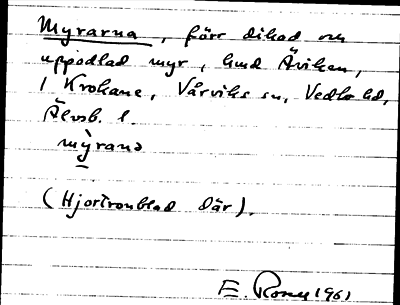 Myrarna, förr dikad och
uppodlad myr, hmd Äviken,
1 Krokane, Vårviks sn, Vedbo hd,
Älvsb. l.
myrana
(Hjortronblad där).
E. 1961